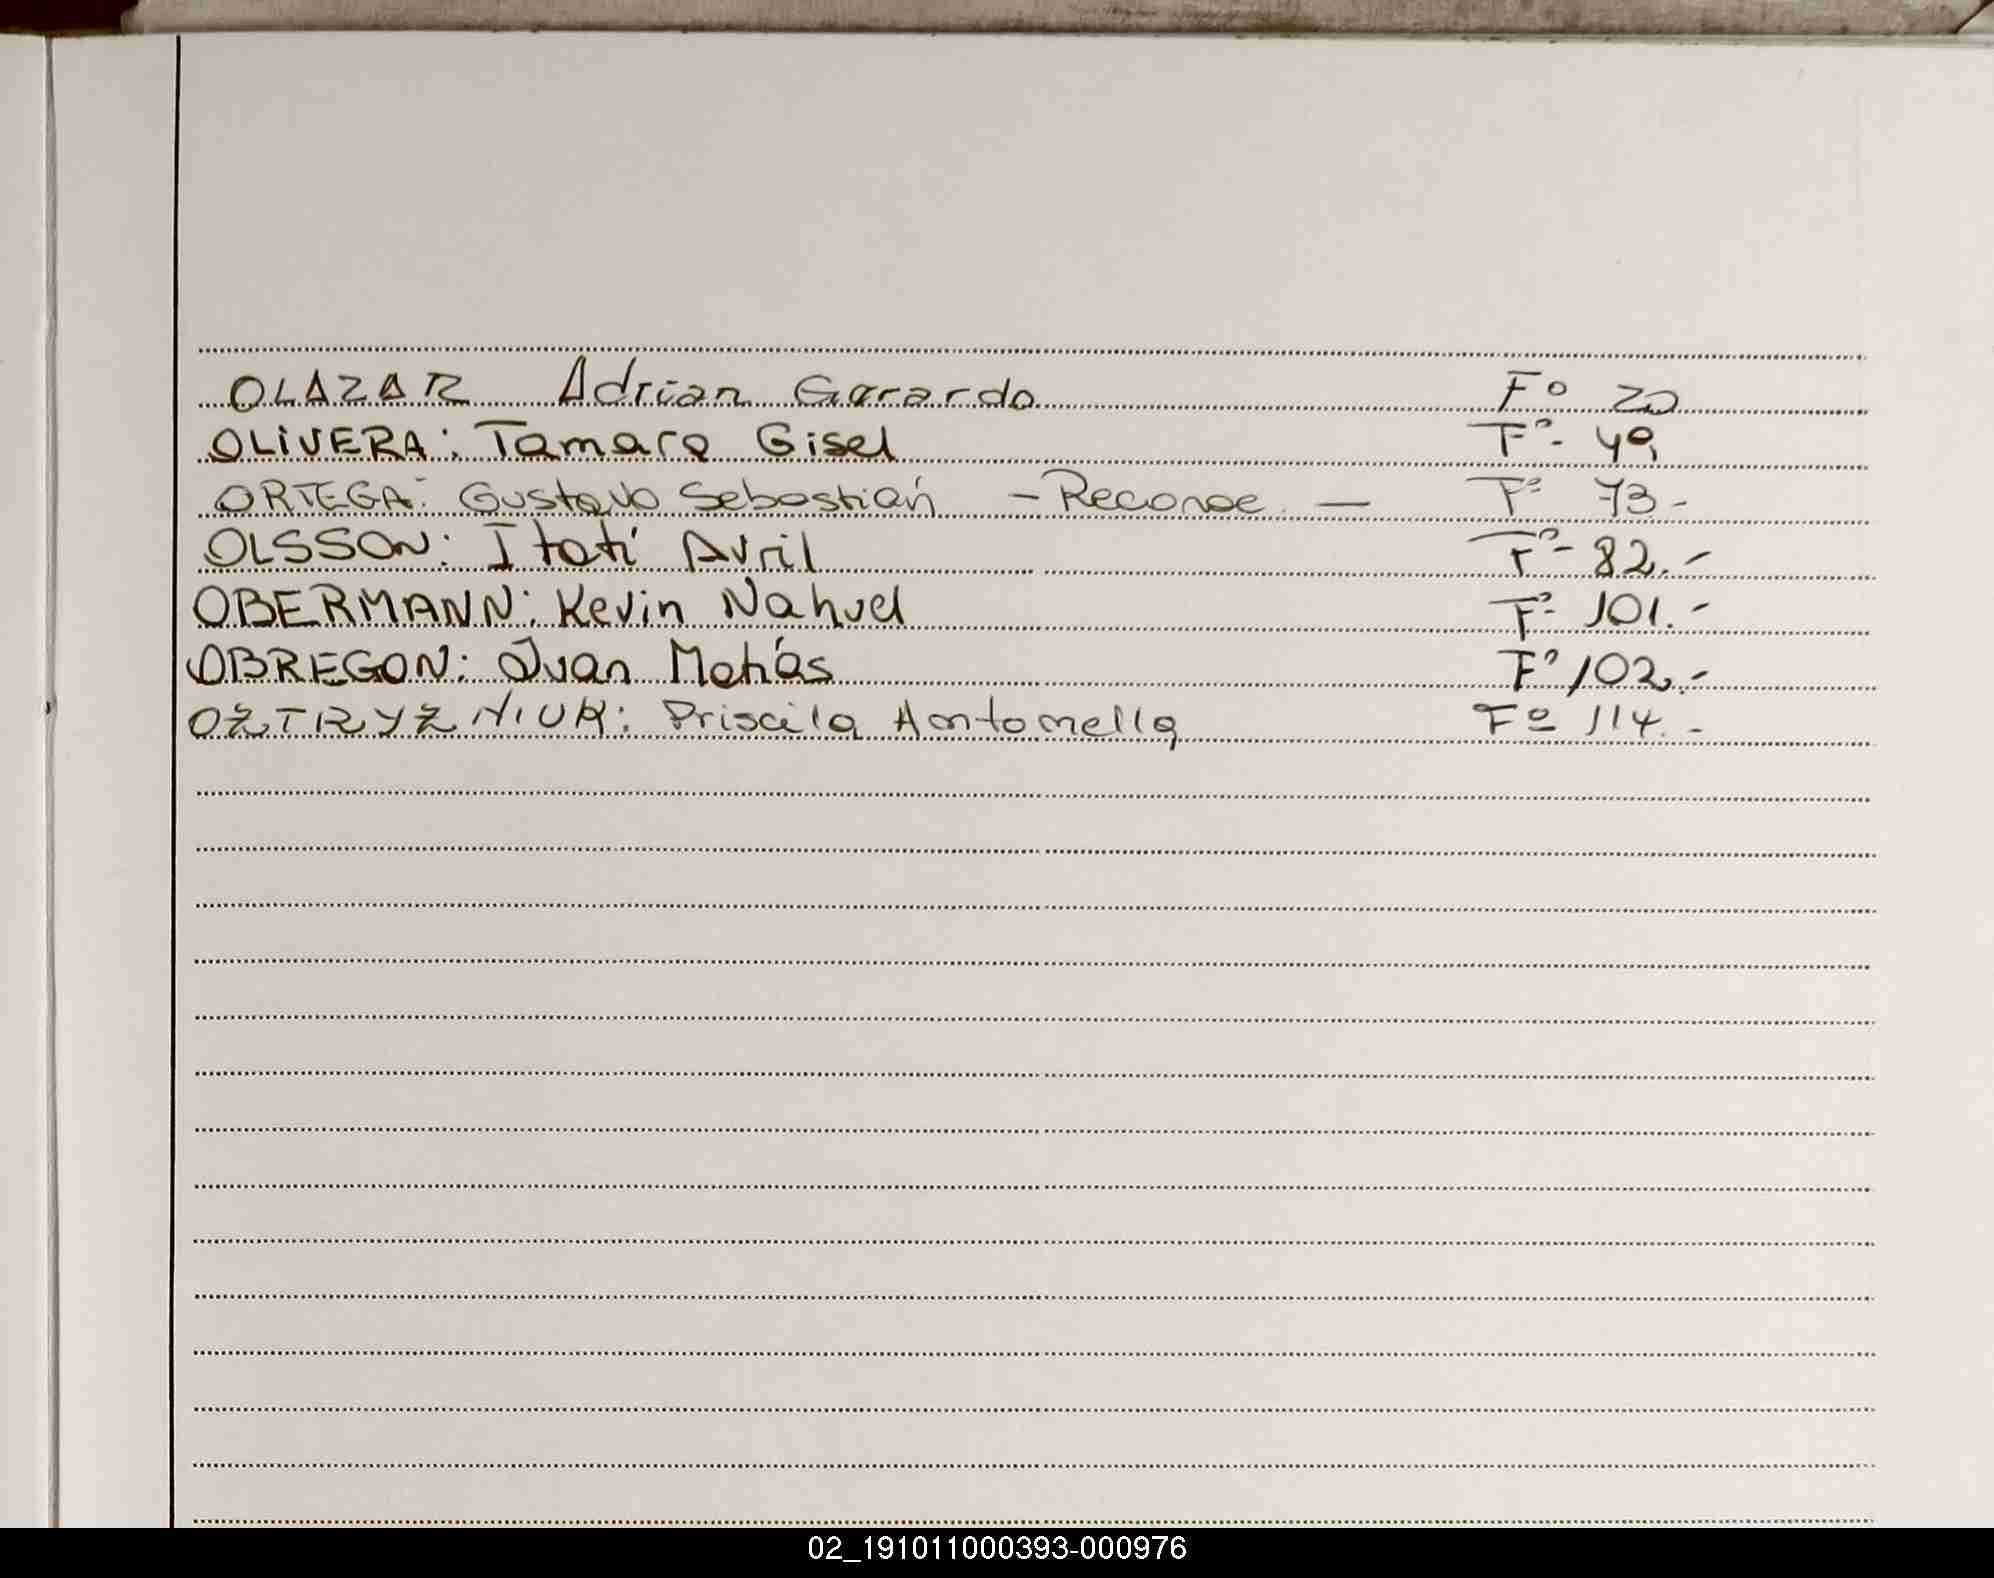 OLAZAR Adrian Gerardo Fº 20
OLIVERA: Tamara Gisel Fº- 49
ORTEGA: Gustavo Sebastián - Reconoc — Fº 73-
OLSSON: Itatí Avril Fº- 82.-
OBERMANN: Kevin Nahuel Fº 101.-
OBREGON: Juan Matías Fº 102.-
OZTRYZNIUK: Priscila Antonella Fº 114.-
02_191011000393-000976